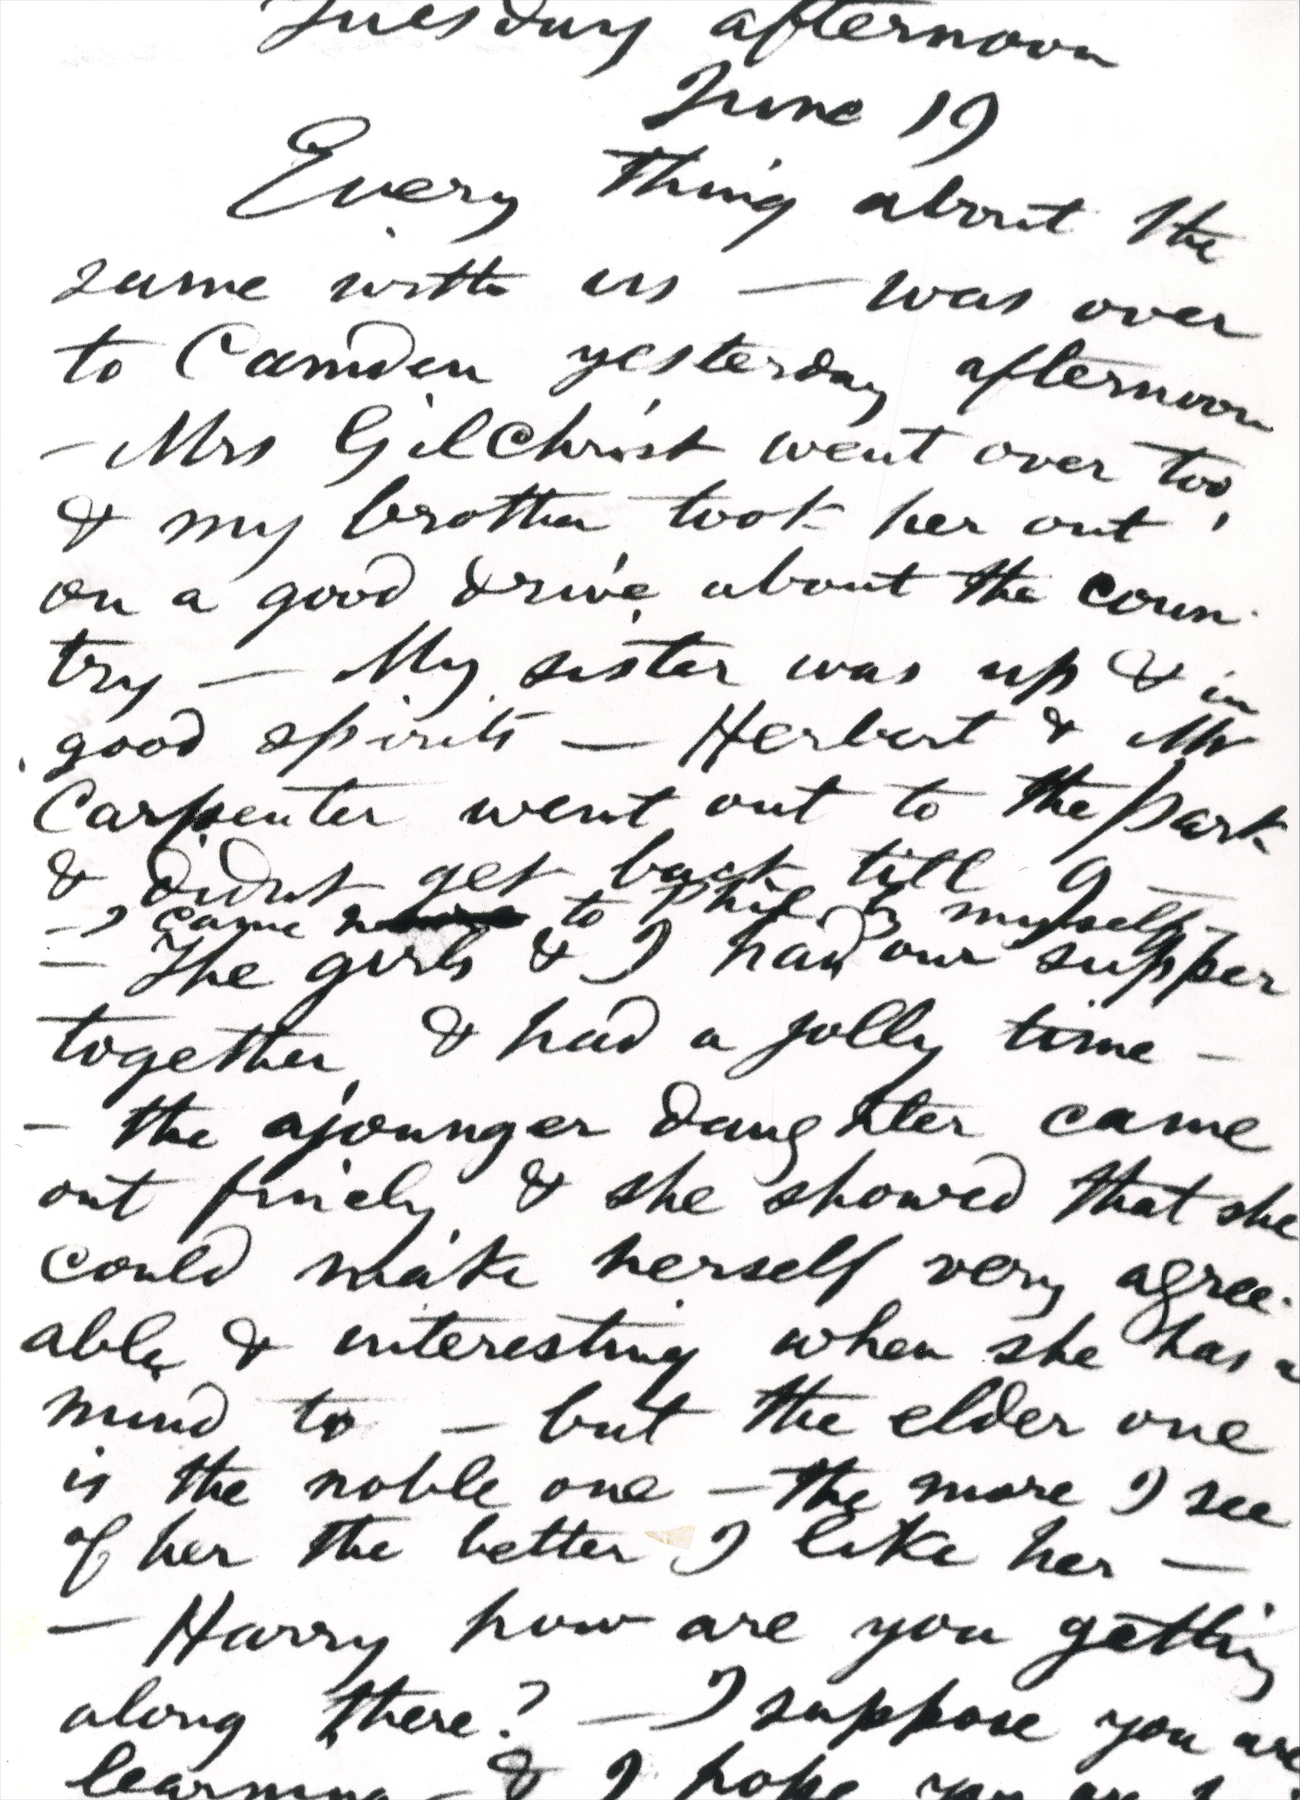 Tuesday afternoon
June 19
Every thing about the
same with us — was over
to Camden yesterday afternoon
— Mrs Gilchrist went over too,
& my brother took her out
on a good drive about the coun-
try — My sister was up & in
good spirits — Herbert & Mr
Carpenter went out to the Park
& didn't get back till 9 —
— I came to Phil. by myself —
— The girls & I had our supper
together, & had a jolly time —
— the younger daughter came
out finely & she showed that she
could make herself very agree-
able, & interesting when she has a
mind to — but the elder one
is the noble one — the more I see
of her the better I like her —
— Harry how are you getting
along there? — I suppose you are
learning — & I hope you are